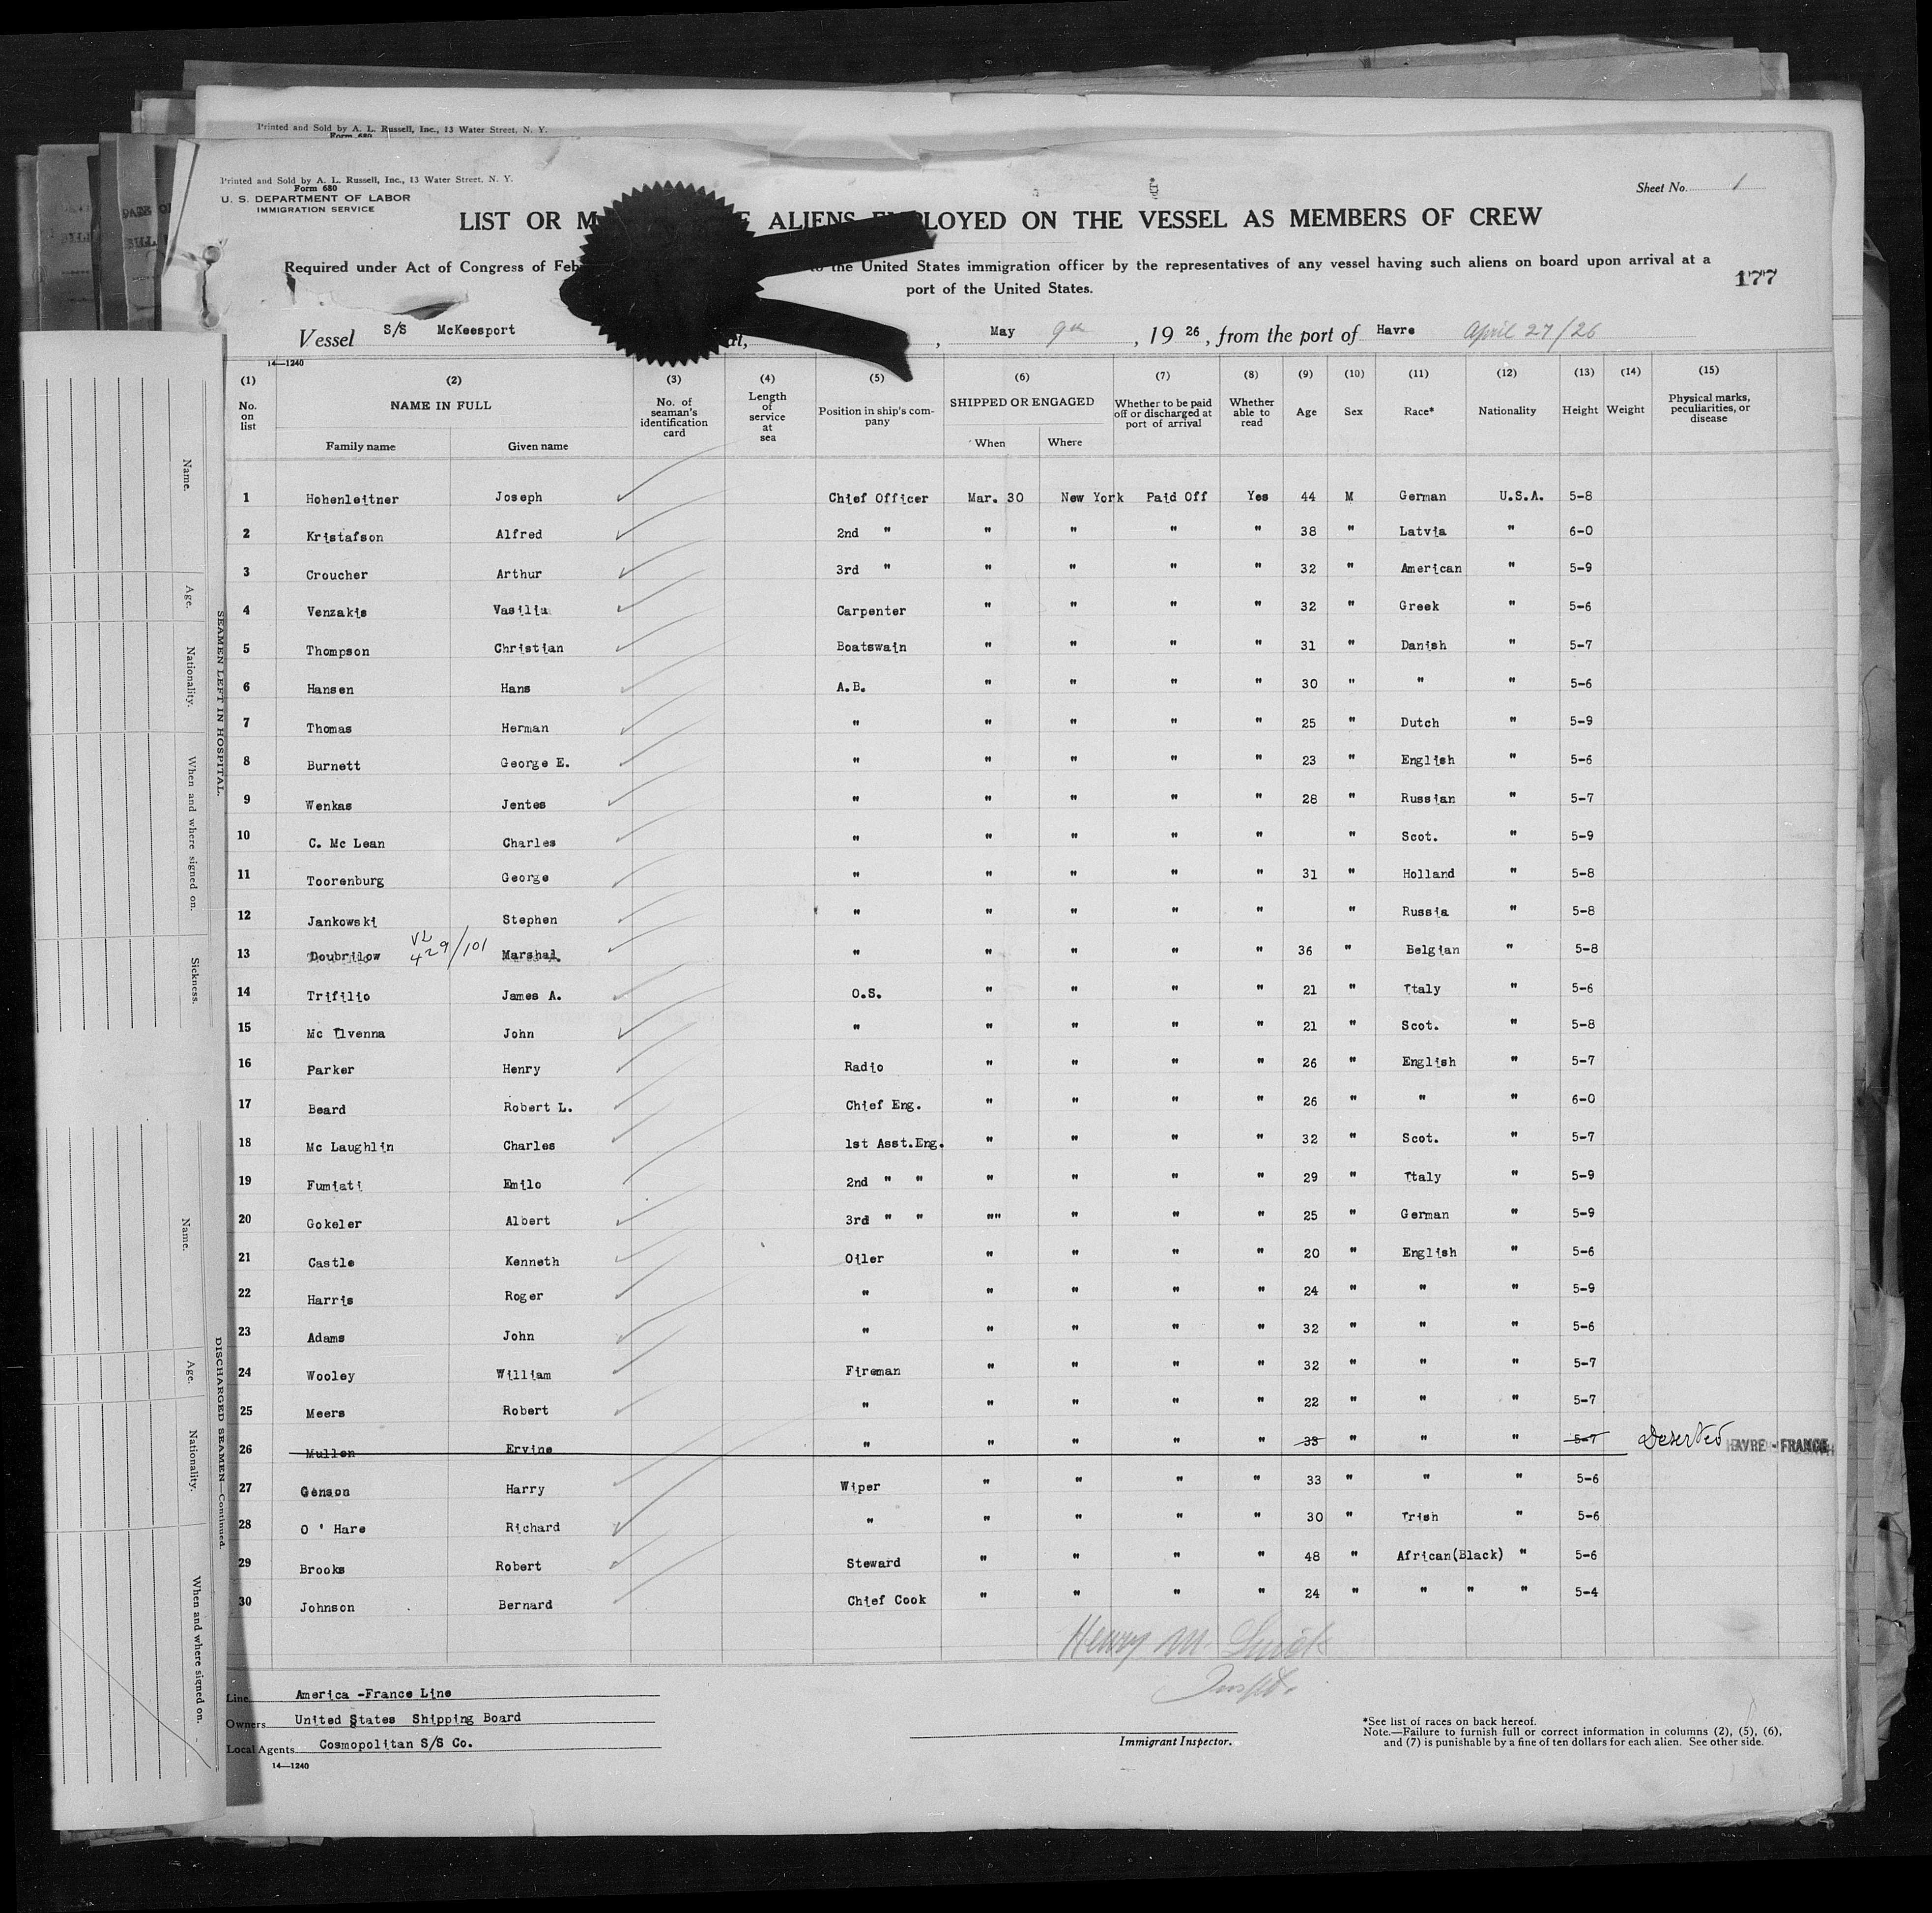 Printed and Sold by A. L. Russell, Inc., 13 Water Street, N. Y.
Form 680
Printed and Sold by A. L. Russell, Inc., 13 Water Street, N. Y.
Form 680
U. S. DEPARTMENT OF LABOR
IMMIGRATION SERVICE
Sheet No. 1
LIST OR ALIENS EMPLOYED ON THE VESSEL AS MEMBERS OF CREW
Required under Act of Congress of Feb to the United States immigration officer by the representatives of any vessel having such aliens on board upon arrival at a
port of the United States.
177
Vessel S/S McKeesport , May 9th , 19 26 , from the port of Havre April 27/26
14—1240
(1) (2) (3) (4) (5) (6) (7) (8) (9) (10) (11) (12) (13) (14) (15)
No. on list NAME IN FULL Family name Given name No. of seaman's identification card Length of service at sea Position in ship's company SHIPPED OR ENGAGED When Where Whether to be paid off or discharged at port of arrival Whether able to read Age Sex Race* Nationality Height Weight Physical marks, peculiarities, or disease
1 Hohenleitner Joseph Chief Officer Mar. 30 New York Paid Off Yes 44 M German U.S.A. 5-8
2 Kristafson Alfred 2nd " " " " " 38 " Latvia " 6-0
3 Croucher Arthur 3rd " " " " " 32 " American " 5-9
4 Venzakis Vasiliu Carpenter " " " " 32 " Greek " 5-6
5 Thompson Christian Boatswain " " " " 31 " Danish " 5-7
6 Hansen Hans A.B. " " " " 30 " " " 5-6
7 Thomas Herman " " " " " 25 " Dutch " 5-9
8 Burnett George E. " " " " " 23 " English " 5-6
9 Wenkas Jentes " " " " " 28 " Russian " 5-7
10 C. Mc Lean Charles " " " " " " Scot. " 5-9
11 Toorenburg George " " " " " 31 " Holland " 5-8
12 Jankowski Stephen " " " " " " Russia " 5-8
13 Doubrilow VL 429/101 Marshal " " " " " 36 " Belgian " 5-8
14 Trifilio James A. O.S. " " " " 21 " Italy " 5-6
15 Mc Ilvenna John " " " " " 21 " Scot. " 5-8
16 Parker Henry Radio " " " " 26 " English " 5-7
17 Beard Robert L. Chief Eng. " " " " 26 " " " 6-0
18 Mc Laughlin Charles 1st Asst.Eng. " " " " 32 " Scot. " 5-7
19 Fumiati Emilo 2nd " " " " " " 29 " Italy " 5-9
20 Gokeler Albert 3rd " " "" " " " 25 " German " 5-9
21 Castle Kenneth Oiler " " " " 20 " English " 5-6
22 Harris Roger " " " " " 24 " " " 5-9
23 Adams John " " " " " 32 " " " 5-6
24 Wooley William Fireman " " " " 32 " " " 5-7
25 Meers Robert " " " " " 22 " " " 5-7
26 Mullen Ervine " " " " " 33 " " " 5-7 Deserted HAVRE - FRANCE
27 Genson Harry Wiper " " " " 33 " " " 5-6
28 O ' Hare Richard " " " " " 30 " Irish " 5-6
29 Brooks Robert Steward " " " " 48 " African(Black) " 5-6
30 Johnson Bernard Chief Cook " " " " 24 " " " " 5-4
Henry M.
Inspt.
Line America -France Line
Owners United States Shipping Board
Local Agents Cosmopolitan S/S Co.
14—1240
Immigrant Inspector.
*See list of races on back hereof.
Note.—Failure to furnish full or correct information in columns (2), (5), (6),
and (7) is punishable by a fine of ten dollars for each alien. See other side.
SEAMEN LEFT IN HOSPITAL.
Name. Age. Nationality. When and where signed on. Sickness.
DISCHARGED SEAMEN—Continued.
Name. Age. Nationality. When and where signed on.